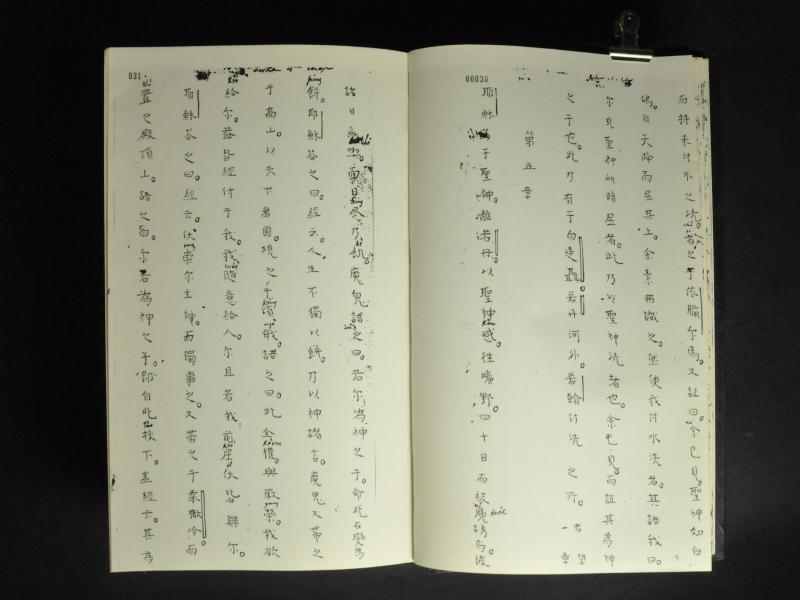 00030
而特來付水之洗
依臘尔焉。又証曰。余已見聖神如白
鴿。自天降而居其上。余素弗識之。然使我付水洗者。其語我曰。
尔見聖神所臨居者。此乃以聖神洗者也。余已見而証其為神
之子也。此乃有于白達聶。若丹河外。若翰付洗之所。
第五章
耶穌 于聖神。離若丹。以聖神感。往曠野。四十日而被魔誘焉。彼
031
諸日 乃飢。魔鬼語之曰。若尔為神之子。命此石變為
餅。耶穌答之曰。經云。人生不獨以餅。乃以神諸言。魔鬼又帶之
于高山。以天下萬國 俄 語之曰。此全權與 榮。我欲
給尔。葢皆經付于我。我隨意給人。尔且若我前屈伏。皆與尔。
耶穌答之曰。經云。伏崇尔主神。而獨事之。又帶之于柔撒冷。而
置之殿頂上。語之曰。尔若為神之子。即自此投下。葢經云。其為